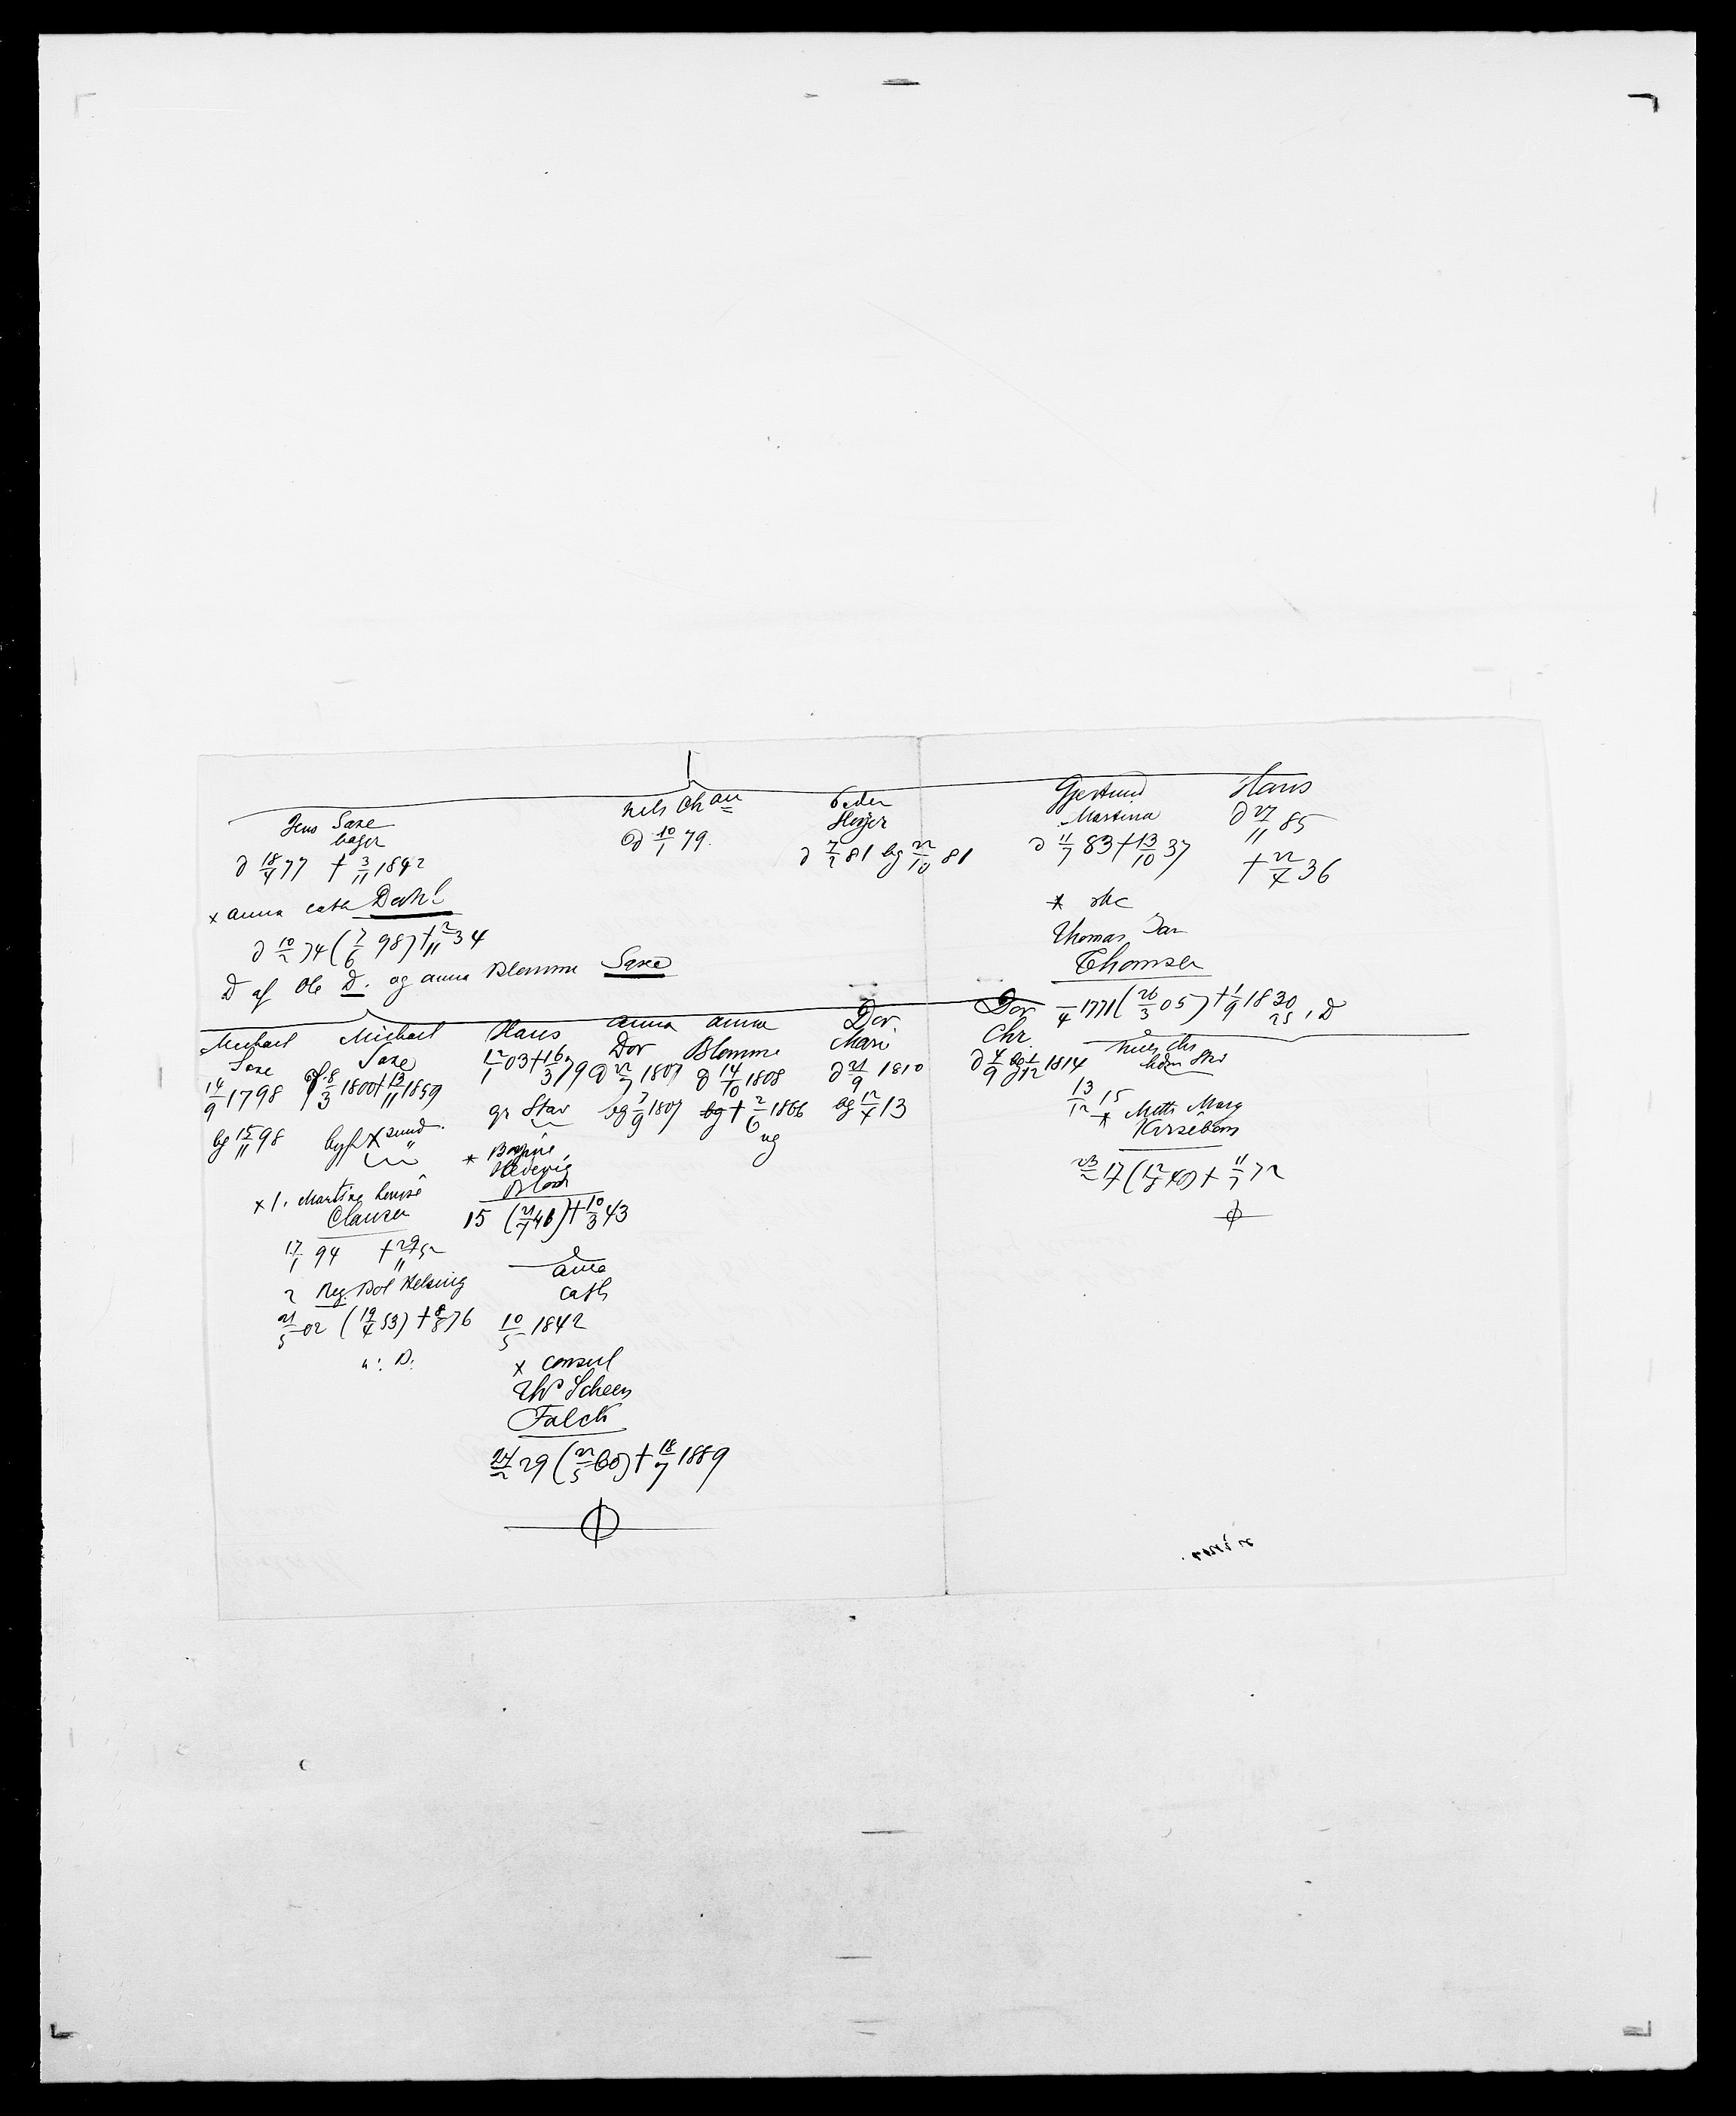 Jens Saxe
bager
D 18/4 77 † 3/11 1842
x anna cath Dahl
D 10/2 74 (7/6 98) † 2/11 34
D af Ole D. og anna Blomme Saxe
Nels Chan
D 10/1 79.
Peder
Høyer
D 7/2 81 bg 22/10 81
Gjertrud
Martina
D 11/7 83 † 13/10 37
Thomas Jan
Thomsen
/4 1771 (26/3 05) † 1/9 1830, D
25
Hans
D 27/11 85
† 22/4 36
Michael
Saxe
14/9 1798
bg 15/11 98
Michael
Saxe
8/3 1800 † 13/11 1859
x 1. Martine Louise
Clausen
17/1 94 † 29/11 52
2 Reg. Dol Helsing
21/5 02 (19/4 53) † 8/8 76
u: D:
Hans
12/1 03 † 16/3 79
gr Stav
* Bergine
Hedevig
Bloch
15 (21/7 46) † 10/3 43
anna
cath
10/5 1842
x consul
Ths Scheen
Falck
24/2 29 (22/5 60) † 18/7 1889
anna
Dor
D 22/7 1807
bg 7/9 1807
anna
Blomme
D 14/10 1808
bg † 2/6 1866
ug
Dor.
Mari
D 21/9 1810
bg 12/4 13
Dor
Chr.
D 4/9 bg 1/12 1814
Niels Chr
13/12 15
* Mette Marg
Kirsebom
23/2 17 (12/8 40) † 11/7 72